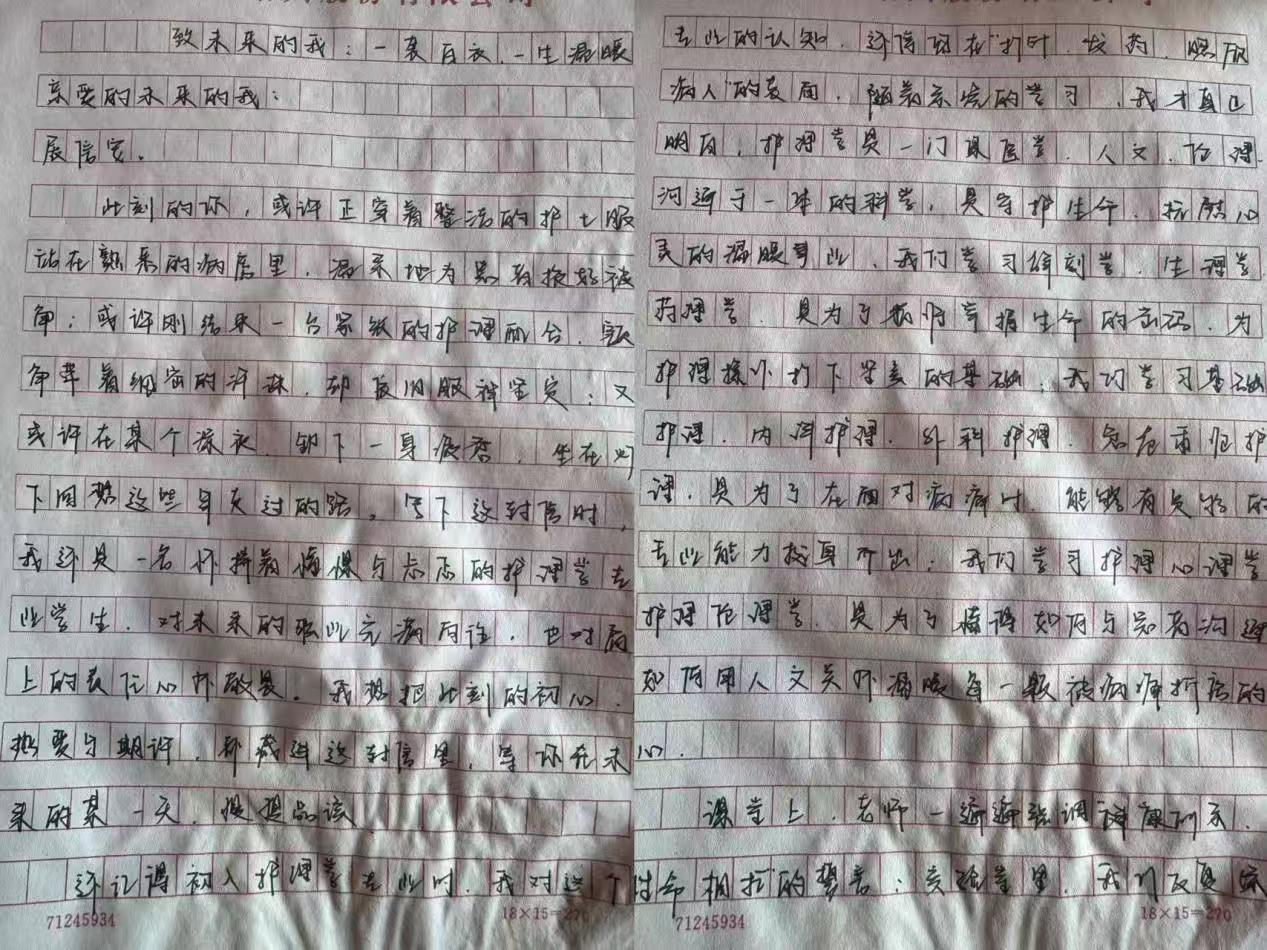 致未来的我：一袭白衣，一生温暖
亲爱的未来的我：
展信安。
此刻的你，或许正穿着整洁的护士服
站在熟悉的病房里，温柔地为患者掖好被
角；或许刚结束一台紧张的护理配合，额
角带着细密的汗珠，却依旧眼神坚定；又
或许在某个深夜，卸下一身疲惫，坐在灯
下回想这些年走过的路。写下这封信时，
我还是一名怀揣着憧憬与忐忑的护理学专
业学生，对未来的职业充满向往，也对肩
上的责任心怀敬畏。我想把此刻的初心、
热爱与期许，都藏进这封信里，等你在未
来的某一天，慢慢品读。
还记得初入护理学专业时，我对这个
71245934
18×15=270
专业的认知，还停留在"打针、发药、照顾
病人"的表面，随着系统的学习，我才真正
明白，护理学是一门集医学、人文、伦理、
沟通于一体的科学，是守护生命、抚慰心
灵的温暖事业。我们学习解剖学、生理学、
药理学，是为了精准掌握生命的密码，为
护理操作打下坚实的基础；我们学习基础
护理、内科护理、外科护理、急危重症护
理，是为了在面对病痛时，能够有足够的
专业能力挺身而出；我们学习护理心理学
护理伦理学，是为了懂得如何与患者沟通
如何用人文关怀温暖每一颗被病痛折磨的
心。
课堂上，老师一遍遍强调"健康所系，
性命相托"的誓言；实验室里，我们反复练
71245934
18×15=270